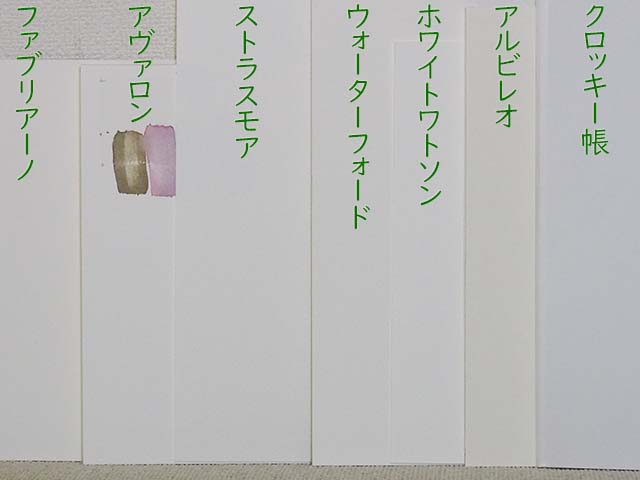 ファブリアーノ
アヴァロン
ストラスモア
ウォーターフォード
ホワイトワトソン
アルビレオ
クロッキー帳